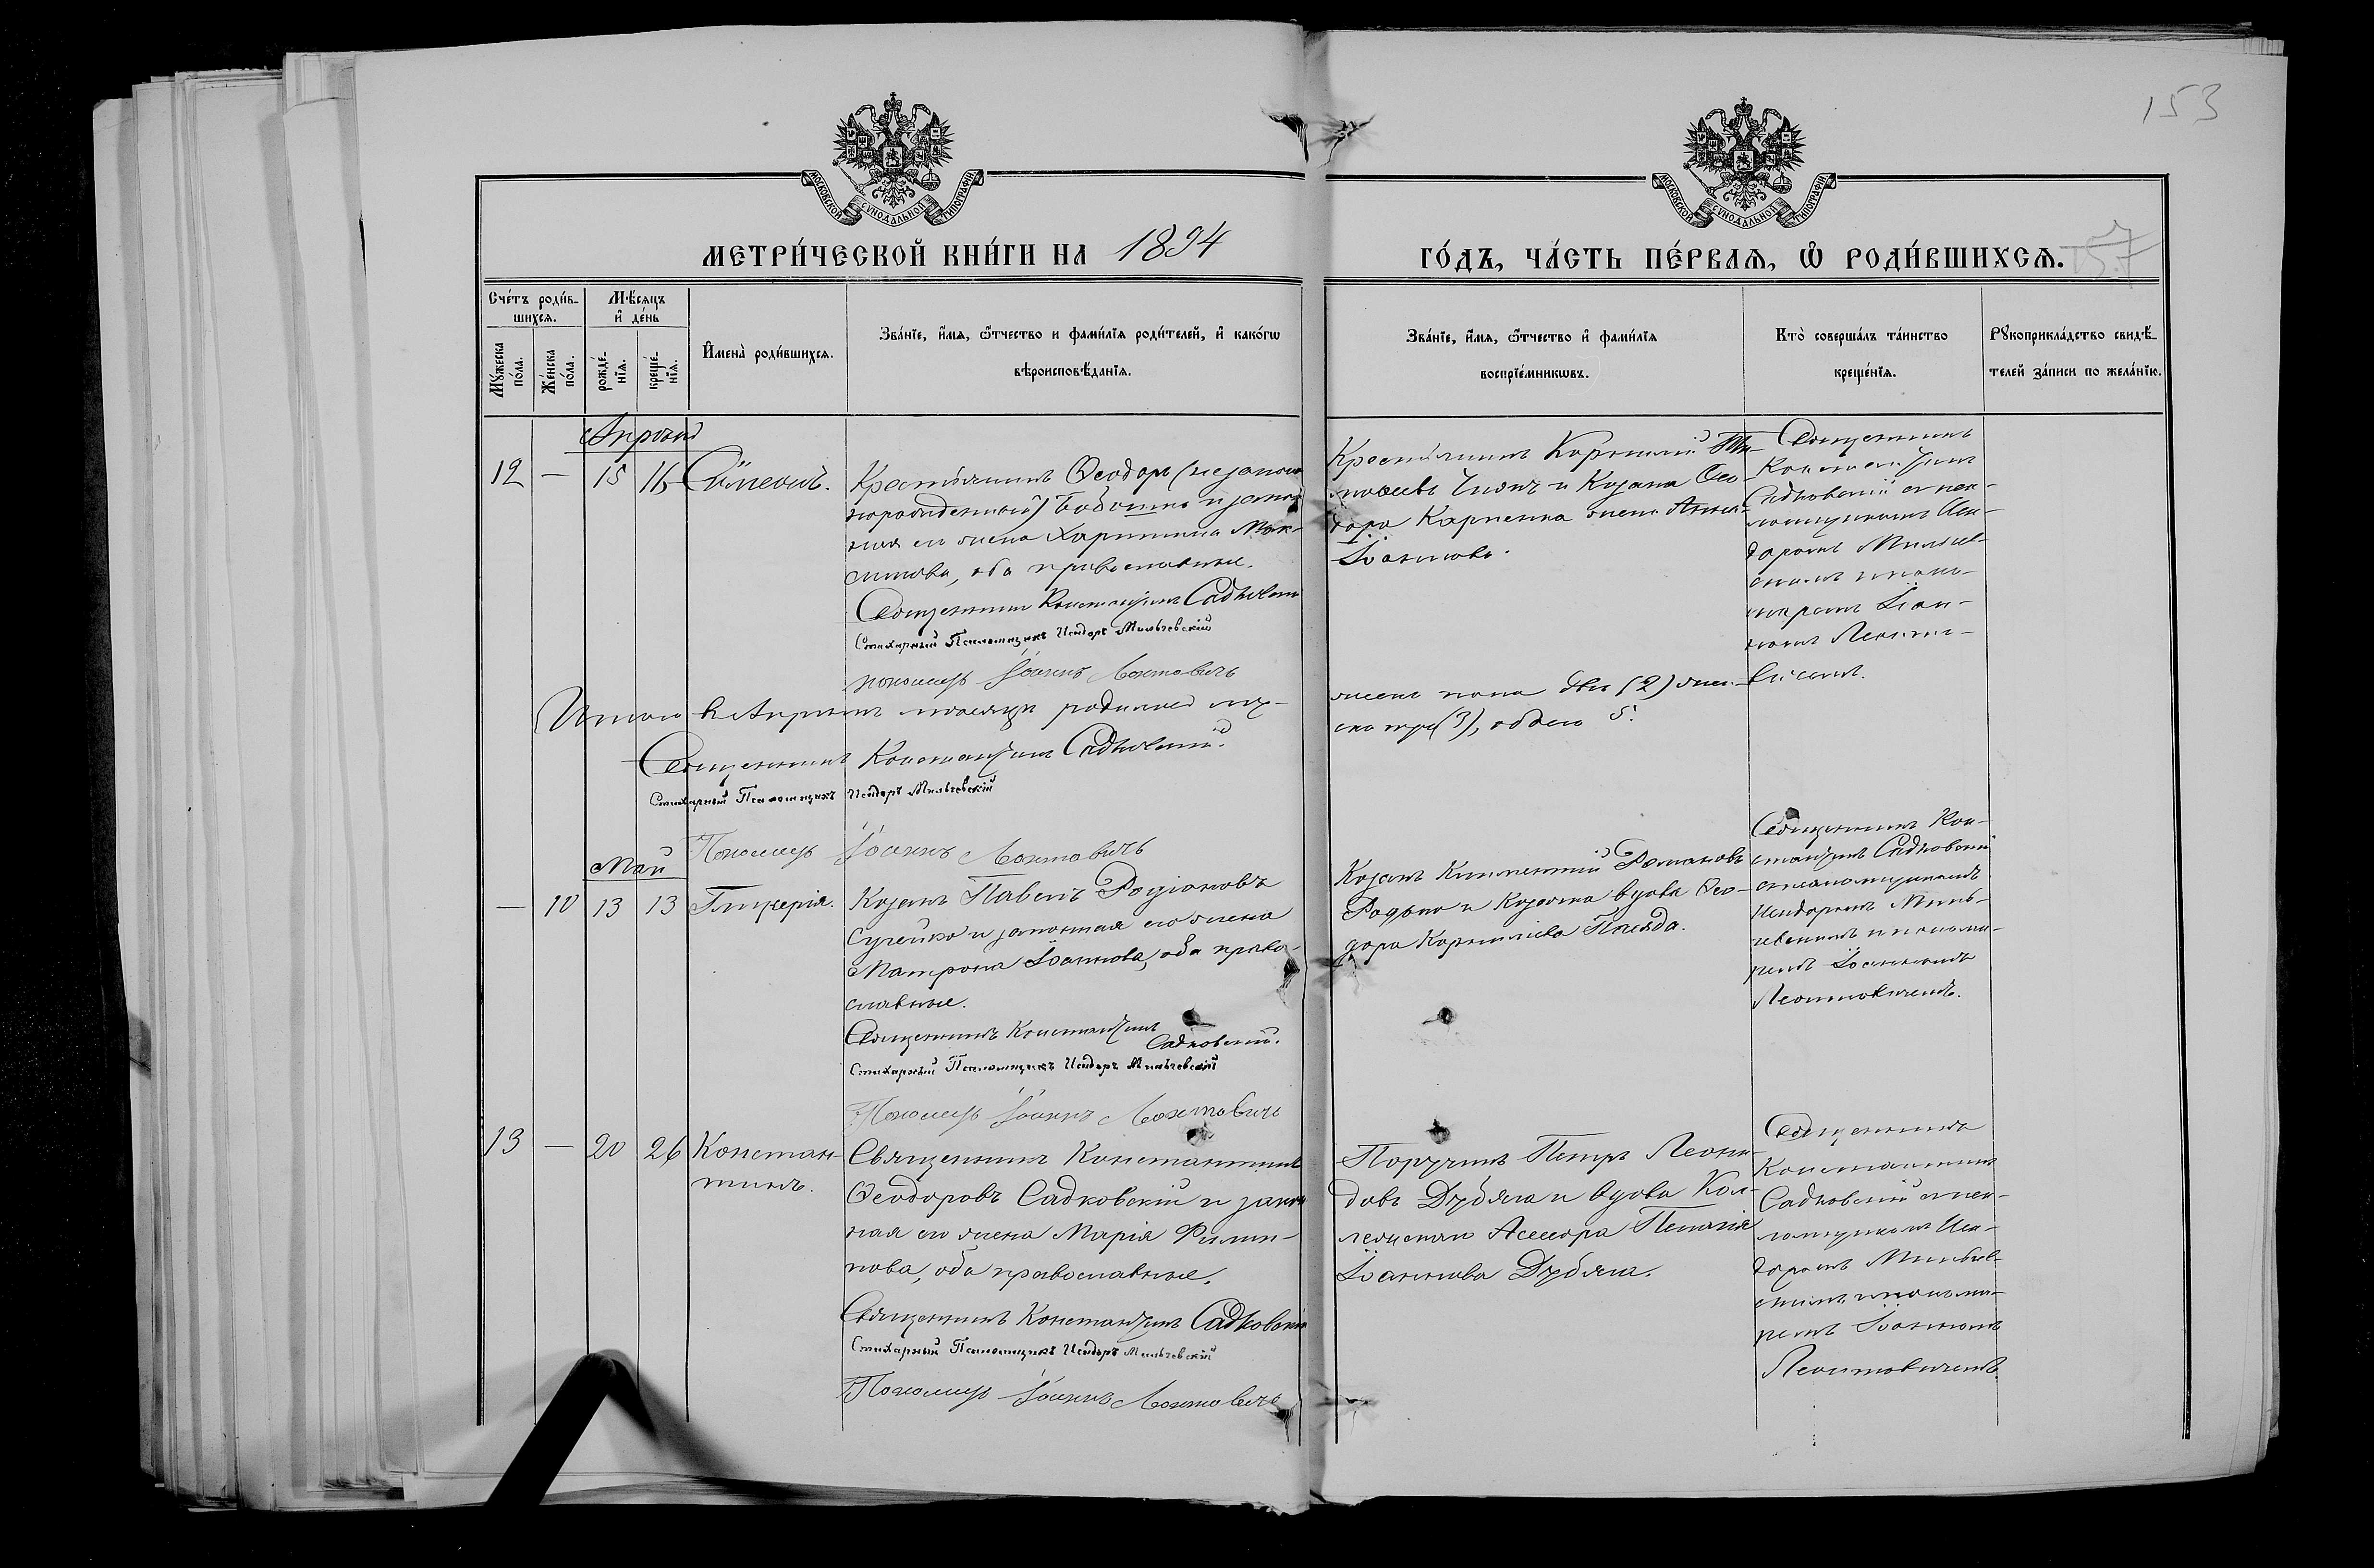 153
МОСКОВСКОЙ СѴНОДАЛЬНОЙ ТИПОГРАФІИ
МОСКОВСКОЙ СѴНОДАЛЬНОЙ ТИПОГРАФІИ
МЕТРИ́ЧЕСКОЙ КНИ́ГИ НА 1894
ГО́ДЪ, ЧА́СТЬ ПЕ́РВАѦ, Ѡ҆ РОДИ́ВШИХСѦ.
Сче́тъ роди́в-
шихсѧ.
Мѣ́сѧцъ
и҆ де́нь
Мꙋ́жеска по́ла.
Же́нска по́ла.
рожде́-
нїѧ.
креще́-
нїѧ.
И҆мена̀ роди́вшихсѧ.
Зва́нїе, и҆́мѧ, ѻ҆́тчество и фами́лїѧ роди́телей, и҆ како́гѡ
вѣроисповѣ́данїѧ.
Зва́нїе, и҆́мѧ, ѻ҆́тчество и҆ фами́лїѧ
воспрїе́мникѡвъ.
Кто̀ соверша́лъ та́инство
креще́нїѧ.
Рꙋкоприкла́дство свидѣ́-
телей за́писи по жела́нїю.
Апрѣль
12 — 15 16 Сѵмеонъ.
Крестьянинъ Ѳеодоръ (незакон
норожденный) и закон
ная его жена Харитина Мак-
симова, оба православные.
Священникъ Константинъ Садковскій
Стихарный Псаломщикъ Исидоръ Мильчевскій
пономарь Іоаннъ Леонтовичъ
Крестьянинъ Корнилій Ти-
моѳеевъ и Козака Ѳео-
дора Карпенка жена Анна
Іоаннова.
Священникъ
Константинъ
Садковскій съ пса-
ломщикомъ Иси-
доромъ Мильчев-
скимъ и поно-
маремъ Іоан-
номъ Леонто-
вичемъ.
Итого въ Апрѣлѣ мѣсяцѣ родилось муж-
жеска пола два (2) жен-
ска три (3), обоего 5.
Священникъ Константинъ Садковскій.
Стихарный Псаломщикъ Исидоръ Мильчевскій
Пономарь Іоаннъ Леонтовичъ
Май
— 10 13 13 Гликерія.
Козакъ Павелъ Родіоновъ
и законная его жена
Матрона Іоаннова, оба право-
славные.
Священникъ Константинъ
Садковскій.
Стихарный Псаломщикъ Исидоръ Мильчевскій
Пономарь Іоаннъ Леонтовичъ
Козакъ Климентій Романовъ
Радько и Козачка вдова Ѳео-
дора Корнилiева
Священникъ Кон-
стантинъ Садковскій
съ псаломщикомъ
Исидоромъ Миль-
чевскимъ и понома-
ремъ Іоанномъ
Леонтовичемъ.
13 — 20 26 Констан-
тинъ.
Священникъ Константинъ
Ѳеодоровъ Садковскій и закон
ная его жена Марія Филип-
пова, оба православные.
Священникъ Константинъ Садковскій
Стихарный Псаломщикъ Исидоръ Мильчевскій
Пономарь Іоаннъ Леонтовичъ
Поручикъ Петръ Леони-
довъ Дубяга и Вдова Кол-
лежскаго Асессора Пелагія
Іоаннова Дубяга.
Священникъ
Константинъ
Садковскій съ пса-
ломщикомъ Иси-
доромъ Мильчев-
скимъ и понома-
ремъ Іоанномъ
Леонтовичемъ.